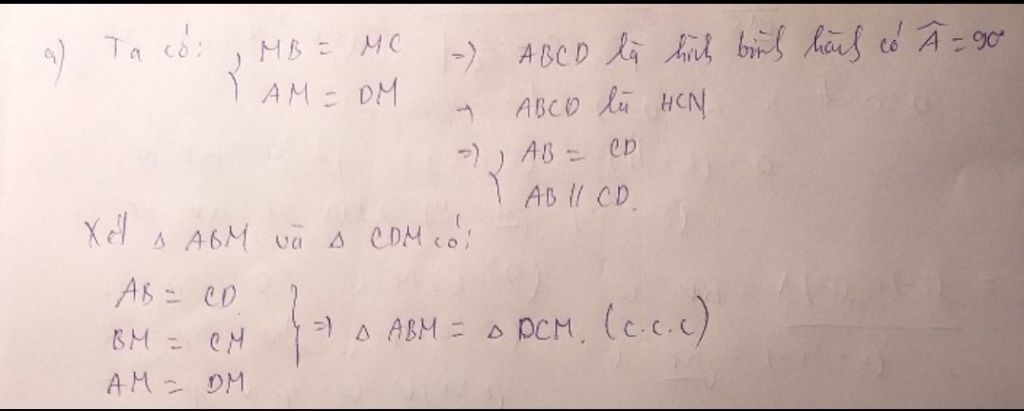 a) Ta có: { MB = MC => ABCD là hình bình hành có Â = 90°
AM = DM → ABCD là HCN
=> { AB = CD
AB // CD.
Xét △ ABM và △ CDM có:
AB = CD
BM = CM } => △ ABM = △ DCM. (c.c.c)
AM = DM